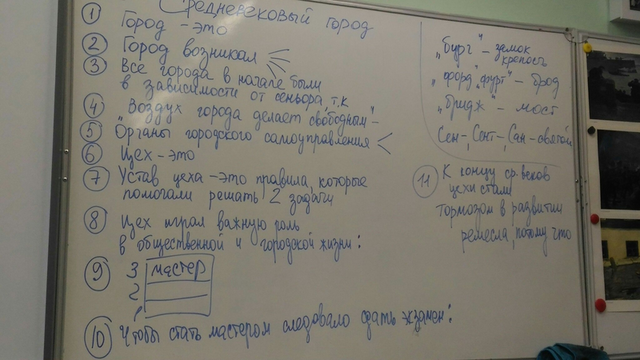 Средневековый город
① Город - это
② Город возникал
③ Все города в начале были
в зависимости от сеньора, т.к
④ "Воздух города делает свободным" -
⑤ Органы городского самоуправления
⑥ Цех - это
⑦ Устав цеха - это правила, которые
помогали решать 2 задачи
⑧ Цех играл важную роль
в общественной и городской жизни:
⑨ 3 мастер
2
1
⑩ Чтобы стать мастером следовало сдать экзамен:
"бург" - замок
крепость
"форд", "фурт" - брод
"бридж" - мост
Сен-, Сент- Сан - святой
⑪ К концу ср. веков
цехи стали
тормозом в развитии
ремесла, потому что